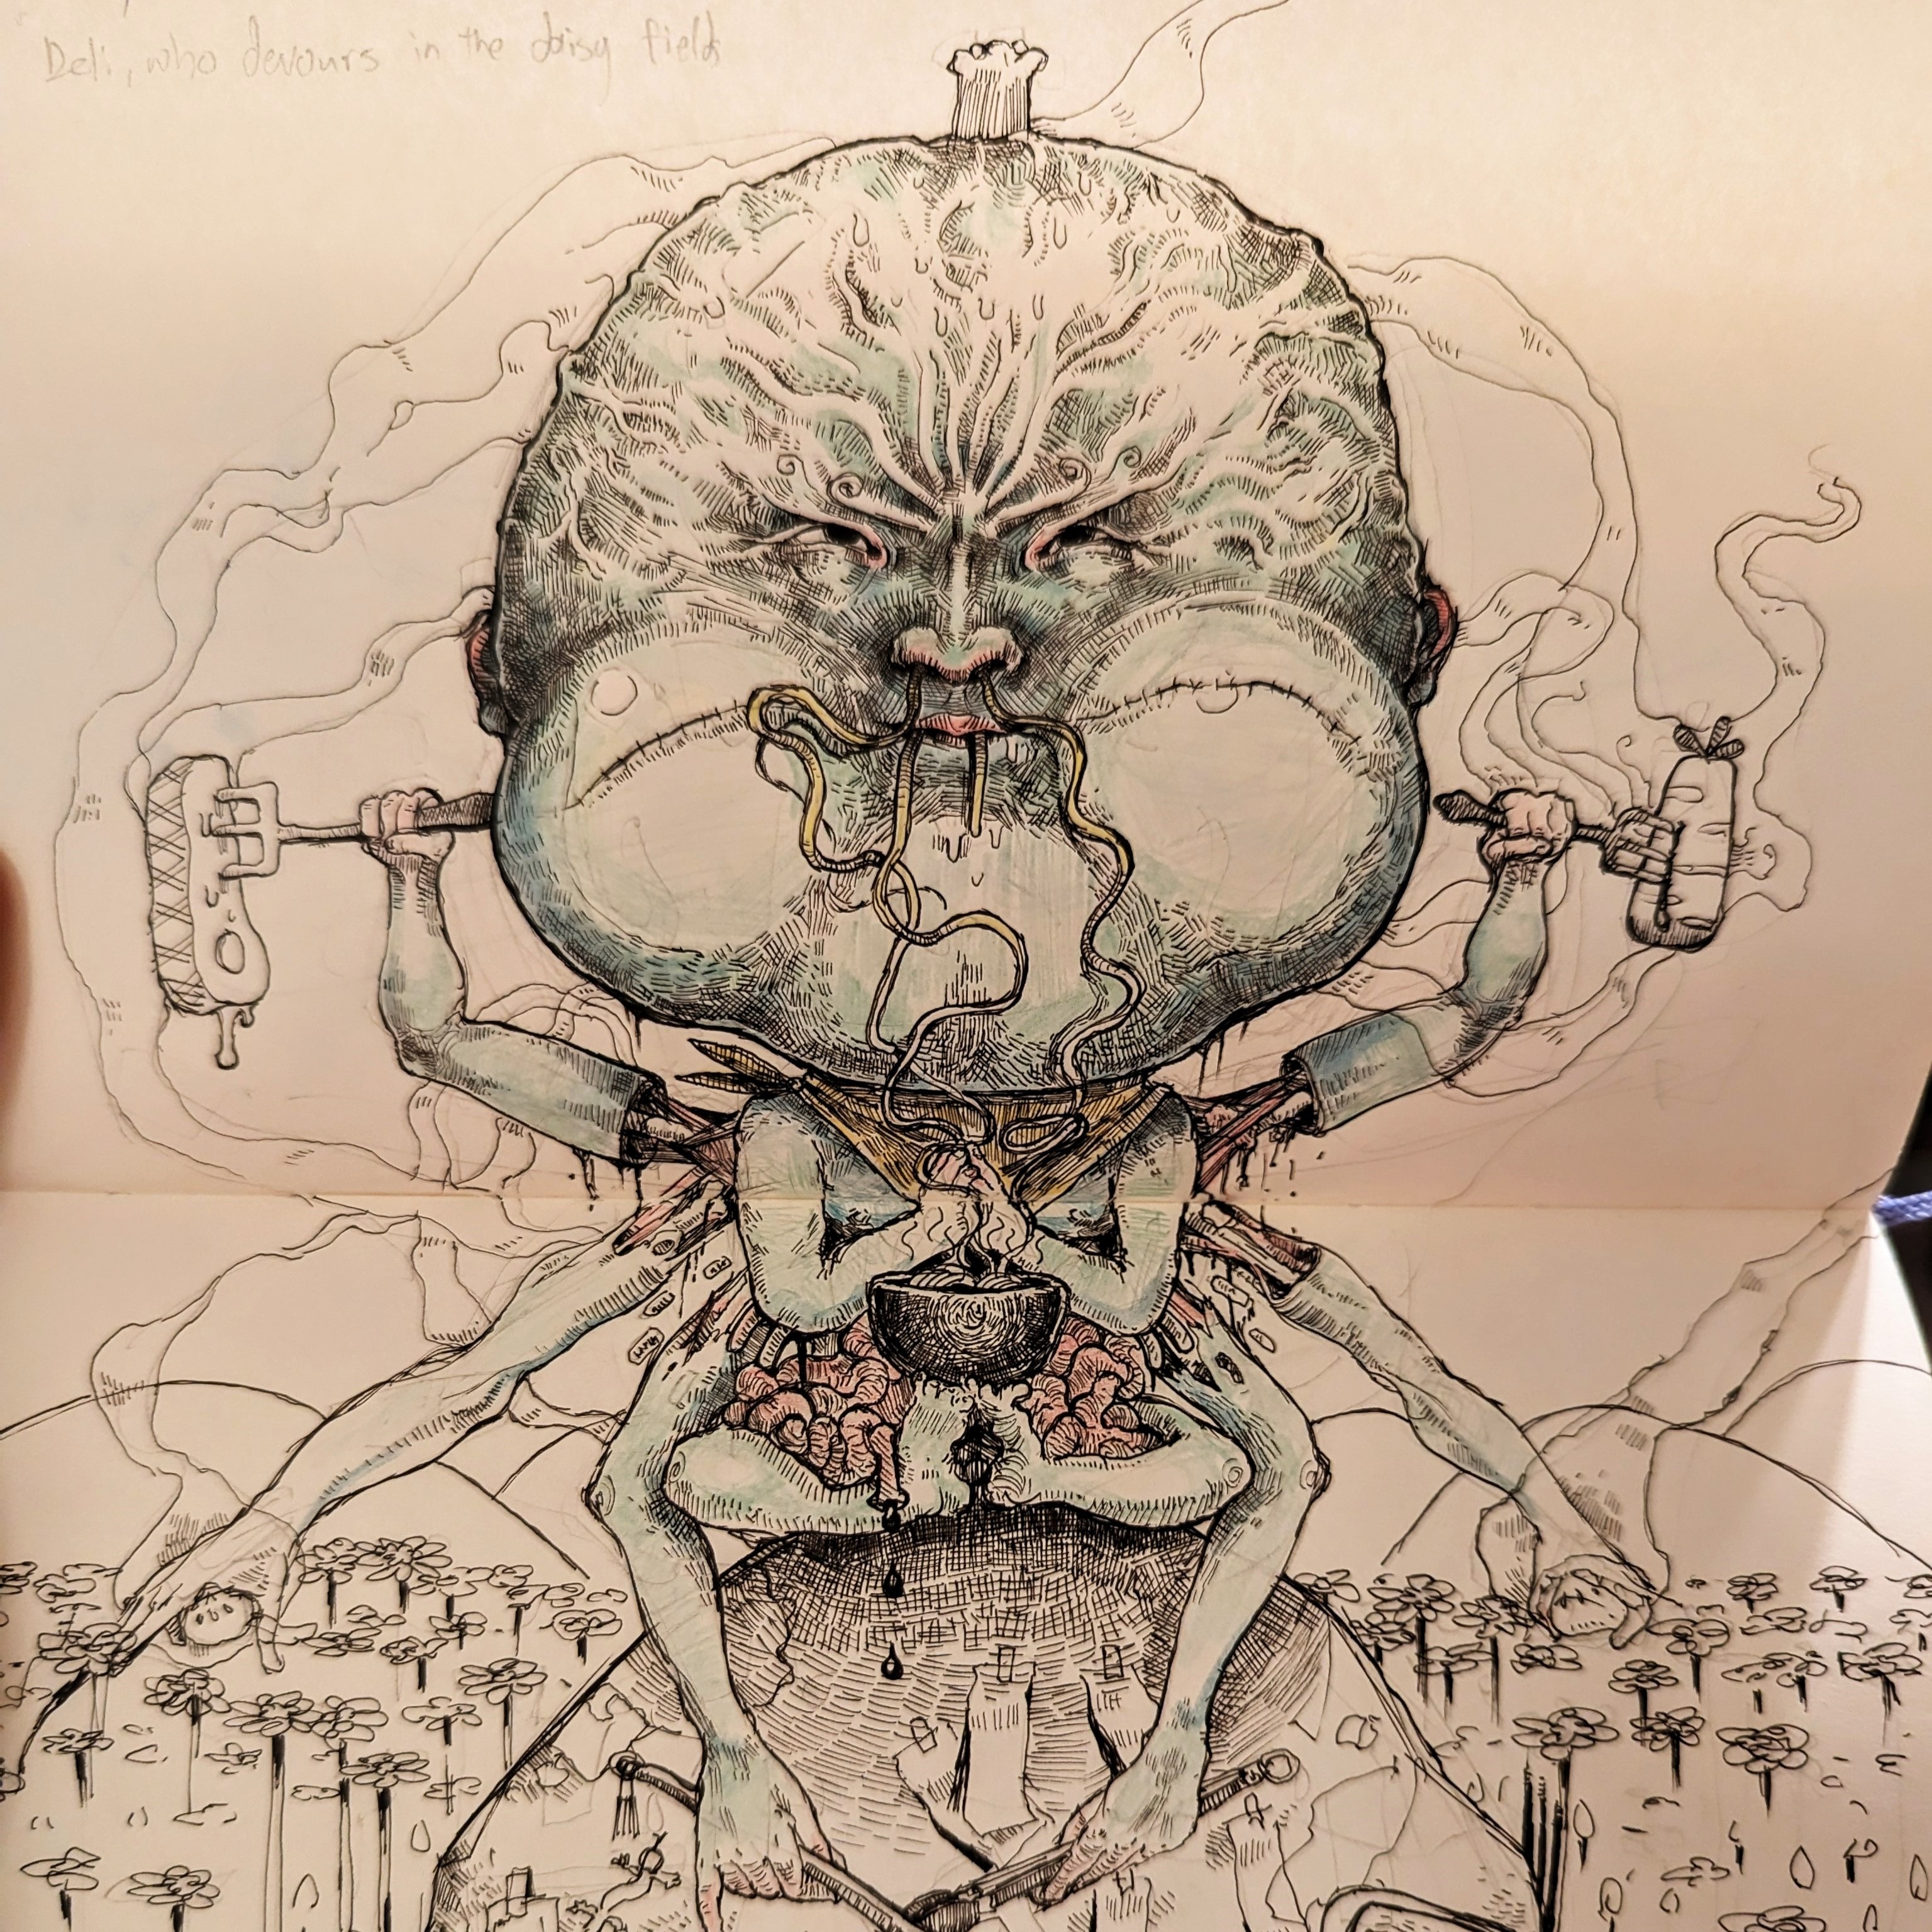 Deli, who devours in the daisy fields